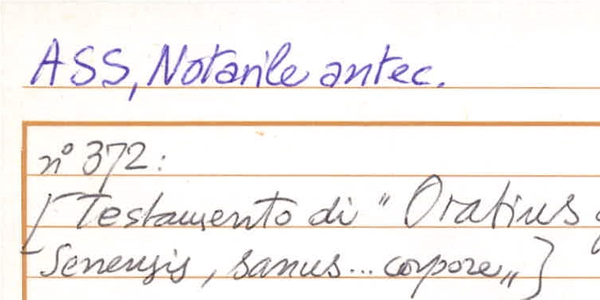 ASS, Notarile antec.
n° 372:
[Testamento di "Oratius
Senensis, sanus... corpore„]